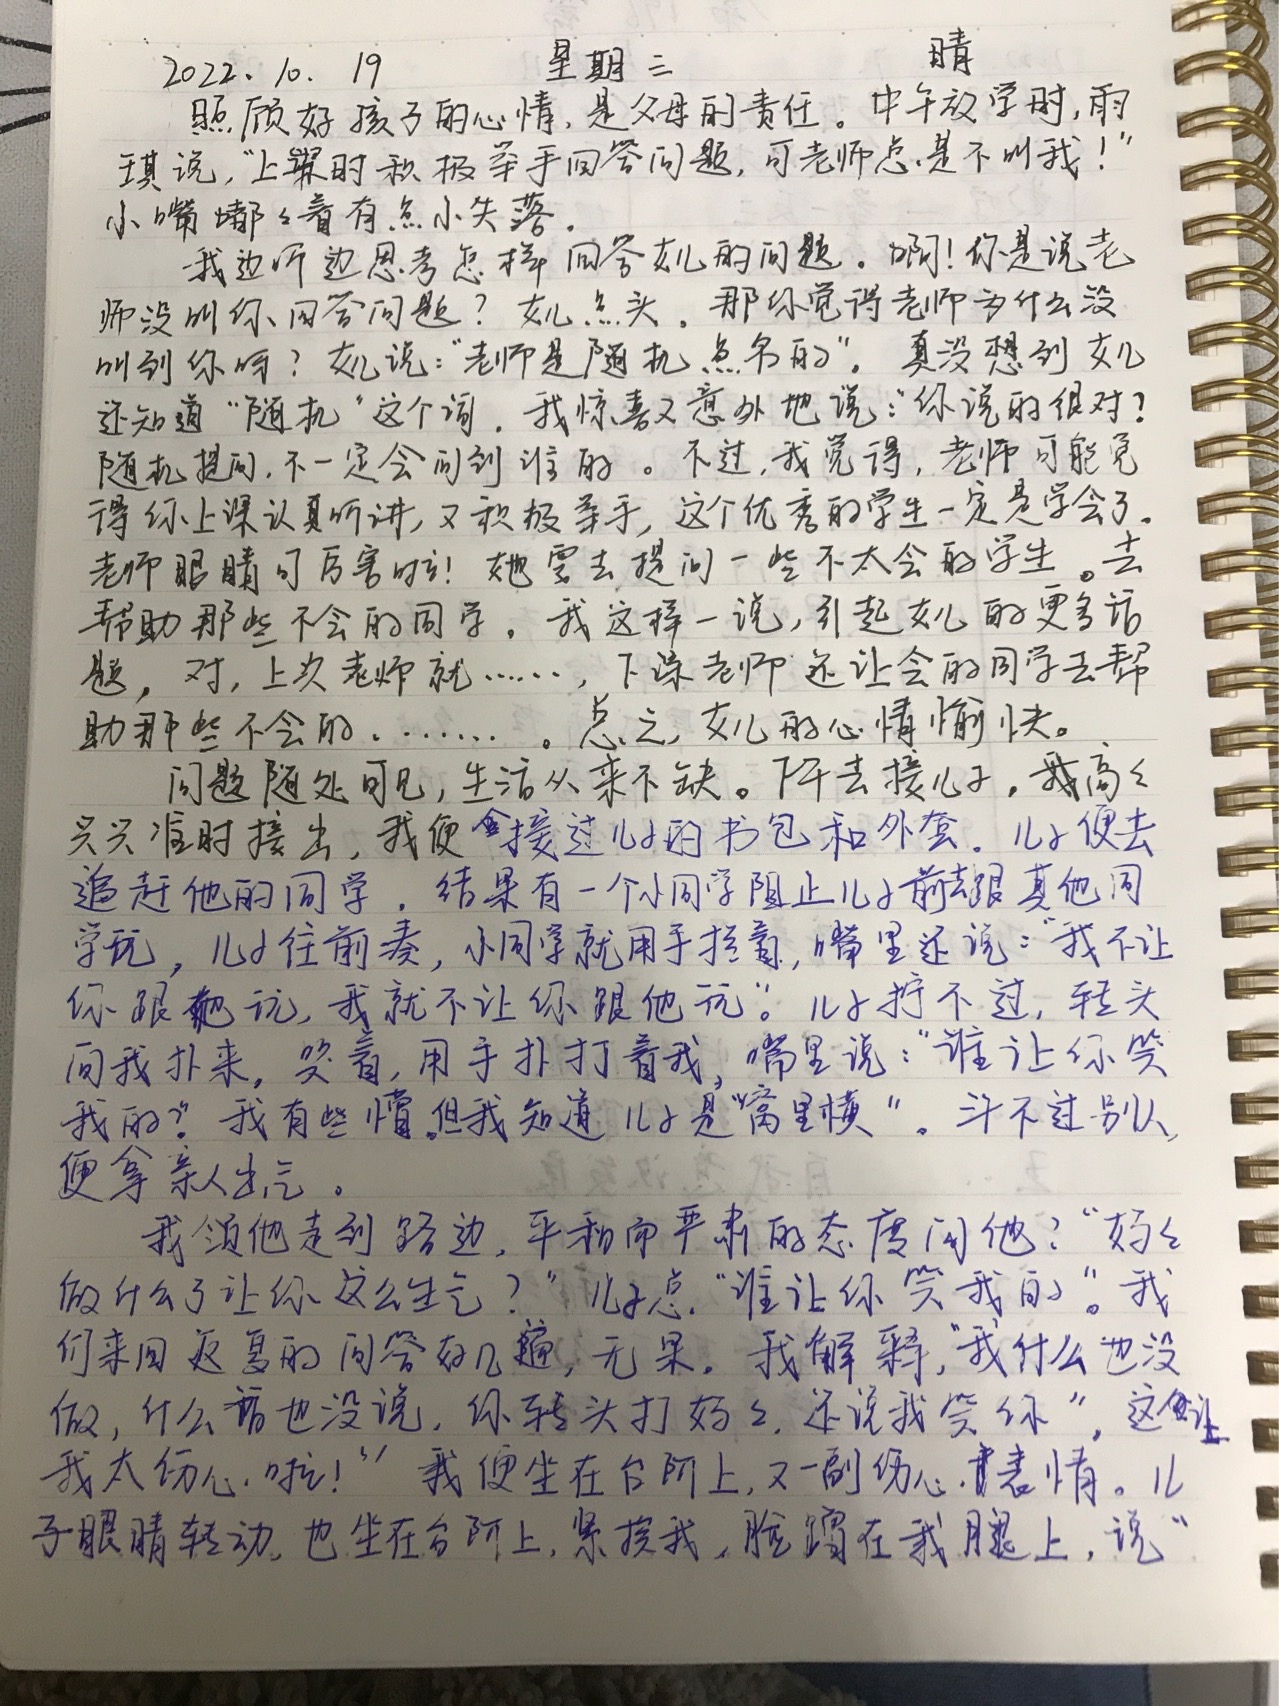 2022.10.19 星期三 晴
照顾好孩子的心情,是父母的责任。中午放学时,雨
琪说,“上课时积极举手回答问题,可老师总是不叫我!”
小嘴嘟々着有点小失落。
我边听边思考怎样回答女儿的问题。啊!你是说老
师没叫你回答问题?女儿点头。那你觉得老师为什么没
叫到你呀?女儿说:“老师是随机点名的”。真没想到女儿
还知道“随机”这个词,我惊喜又意外地说:“你说的很对?
随机提问,不一定会问到谁的。不过,我觉得,老师可能觉
得你上课认真听讲,又积极举手,这个优秀的学生一定是学会了。
老师眼睛可厉害啦!她要去提问一些不太会的学生。去
帮助那些不会的同学。我这样一说,引起女儿的更多话
题,对,上次老师就……,下课老师还让会的同学去帮
助那些不会的.……。总之,女儿的心情愉快。
问题随处可见,生活从来不缺。下午去接儿子,我高々
兴兴准时接出,我便接过儿子的书包和外套。儿子便去
追赶他的同学,结果有一个小同学阻止儿子前去跟其他同
学玩,儿子往前凑,小同学就用手拦着,嘴里还说:“我不让
你跟他玩,我就不让你跟他玩”。儿子拧不过,转头
向我扑来,哭着,用手扑打着我,嘴里说:“谁让你笑
我的?”我有些懵。但我知道儿子是“窝里横”。斗不过别人,
便拿亲人出气。
我领他走到路边,平和而严肃的态度问他?“妈々
做什么了让你这么生气?”儿子总“谁让你笑我的”。我
们来回返复的问答好几遍,无果。我解释,“我什么也没
做,什么话也没说,你转头打妈々,还说我笑你”,这让
我太伤心啦!”我便坐在台阶上,又一副伤心表情。儿
子眼睛转动,也坐在台阶上,紧挨我,脸蹭在我腿上,说“